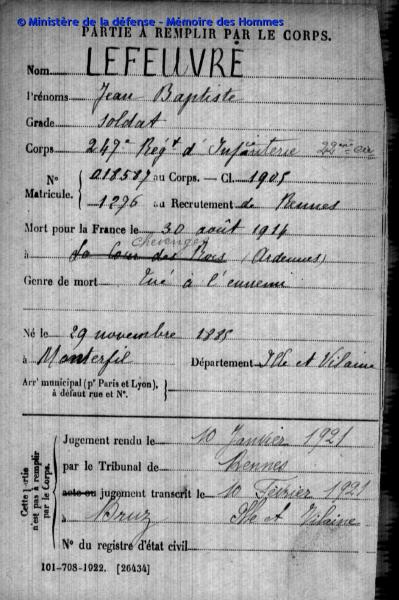 © Ministère de la défense - Mémoire des Hommes
PARTIE À REMPLIR PAR LE CORPS.
Nom LEFEUVRE
Prénoms Jean Baptiste
Grade soldat
Corps 247e Régt d'Infanterie
N° 018587 au Corps. — Cl. 1905
Matricule. 1276 au Recrutement de Rennes
Mort pour la France le 30 août 1914
à La Cour des Rois (Ardennes)
Genre de mort Tué à l'ennemi
Né le 29 novembre 1885
à Monterfil Département Ille et Vilaine
Arrt municipal (pr Paris et Lyon),
à défaut rue et N°.
Cette partie
n'est pas à remplir
par le Corps.
Jugement rendu le 10 Janvier 1921
par le Tribunal de Rennes
acte ou jugement transcrit le 10 Février 1921
à Bruz Ille et Vilaine
N° du registre d'état civil
101-708-1922. [26434]